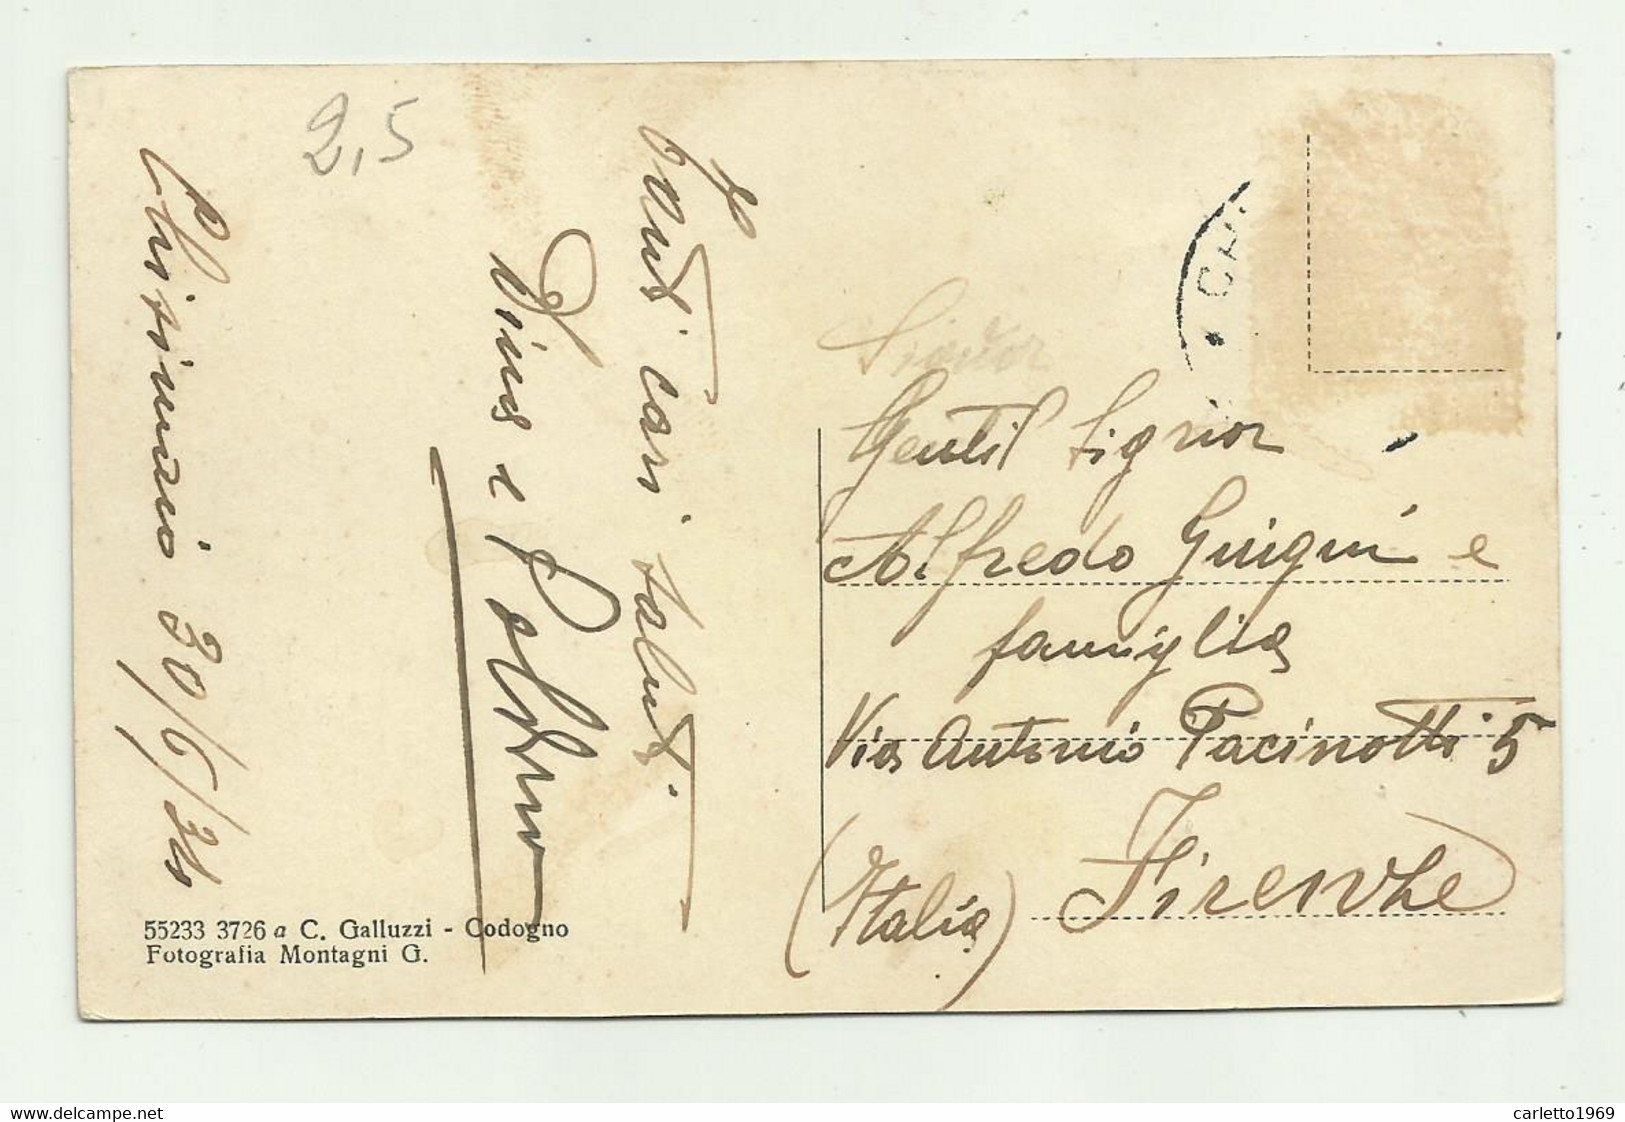 2,5
Tanti cari saluti
Dina e
30/6/34
55233 3726 a C. Galluzzi - Codogno
Fotografia Montagni G.
CHI
Signor
Gentil Signor
Alfredo Guigni e
famiglia
Via Antonio Pacinotti 5
Firenze
(Italia)
www.delcampe.net
carletto1969